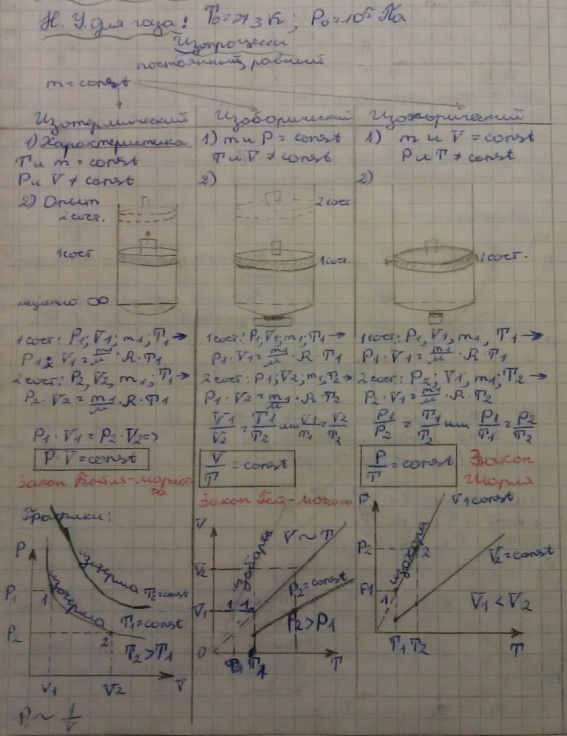 Н. У. для газа: T₀ = 273 К; P₀ = 10⁵ Па
Изопроцессы
постоянный, равный
m = const
Изотермический
1) Характеристика
T и m = const
P и V ≠ const
2) Опыт
2 сост.
1 сост
медленно ∞
1 сост: P₁; V₁; m₁; T₁ →
P₁ · V₁ = m₁/μ · R · T₁
2 сост: P₂, V₂, m₁, T₁ →
P₂ · V₂ = m₁/μ · R · T₁
P₁ · V₁ = P₂ · V₂ =>
P · V = const
Закон Бойля-Мариотта
Графики:
P
P₁
P₂
1
2
изотерма
изотерма
T₂ = const
T₁ = const
T₂ > T₁
V₁
V₂
V
P ~ 1/V
Изобарический
1) m и P = const
T и V ≠ const
2)
2 сост
1 сост.
1 сост: P₁, V₁; m₁; T₁ →
P₁ · V₁ = m₁/μ · R · T₁
2 сост: P₁; V₂; m₁; T₂ →
P₁ · V₂ = m₁/μ · R · T₂
V₁/V₂ = T₁/T₂ или V₁/T₁ = V₂/T₂
V/T = const
Закон Гей-Люссака
V
V₂
V₁
изобары
V ~ T
P₂ = const
P₂ > P₁
1
0
T
Изохорический
1) m и V = const
P и T ≠ const
2)
1 сост.
1 сост: P₁, V₁, m₁, T₁ →
P₁ · V₁ = m₁/μ · R · T₁
2 сост: P₂; V₁, m₁; T₂ →
P₂ · V₁ = m₁/μ · R · T₂
P₁/P₂ = T₁/T₂ или P₁/T₁ = P₂/T₂
P/T = const
Закон Шарля
P
P₂
P₁
1
2
изохора
V₁ const
V₂ = const
V₁ < V₂
T₁ T₂
T